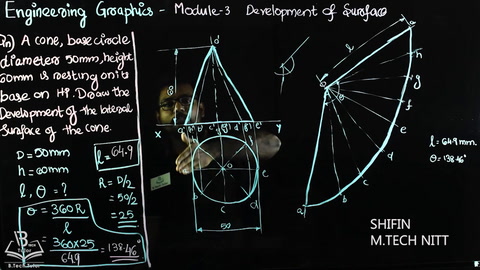 Engineering Graphics - Module-3 Development of Surface
Qn) A cone, base circle
diameters 50mm, height
60mm is resting on its
base on HP. Draw the
Development of the lateral
Surface of the cone.
D = 50mm
h = 60mm
l, θ = ?
l = 64.9
R = D/2
= 50/2
= 25
θ = 360R
l
= 360x25
64.9
= 138.46°
o'
60
x
y
o
b
c
d
e
50
l
o
θ
a
h
g
f
e
d
c
b
a
l = 64.9mm
θ = 138.46°
SHIFIN
M.TECH NITT
B.Tech Tutor